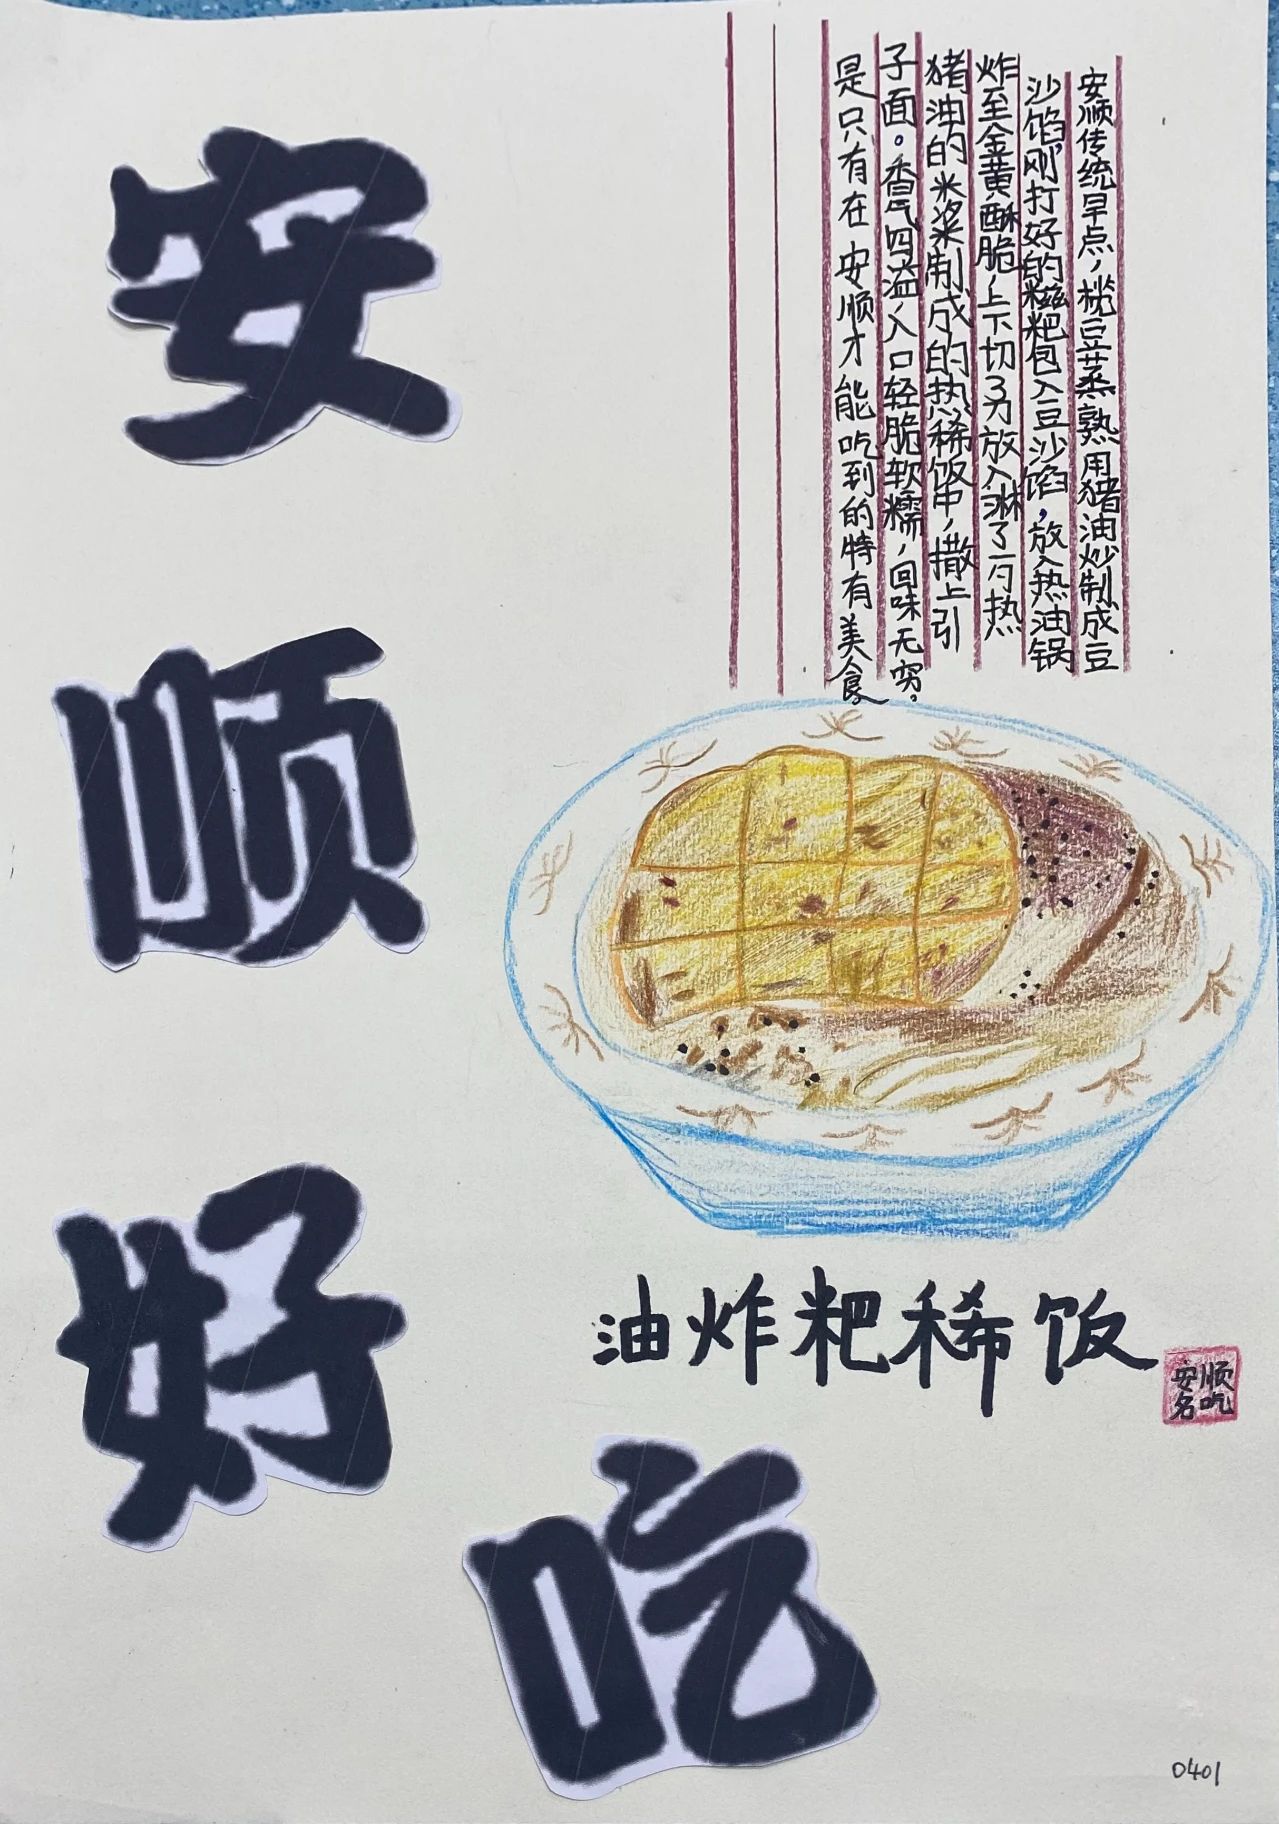 安顺好吃
安顺传统早点，榄豆蒸熟用猪油炒制成豆
沙馅刚打好的糍粑包入豆沙馅，放入热油锅
炸至金黄酥脆，上下切3刀放入淋了一勺热
猪油的米浆制成的热稀饭中，撒上引
子面。香气四溢，入口轻脆软糯，回味无穷。
是只有在安顺才能吃到的特有美食。
油炸粑稀饭
安顺
名吃
0401